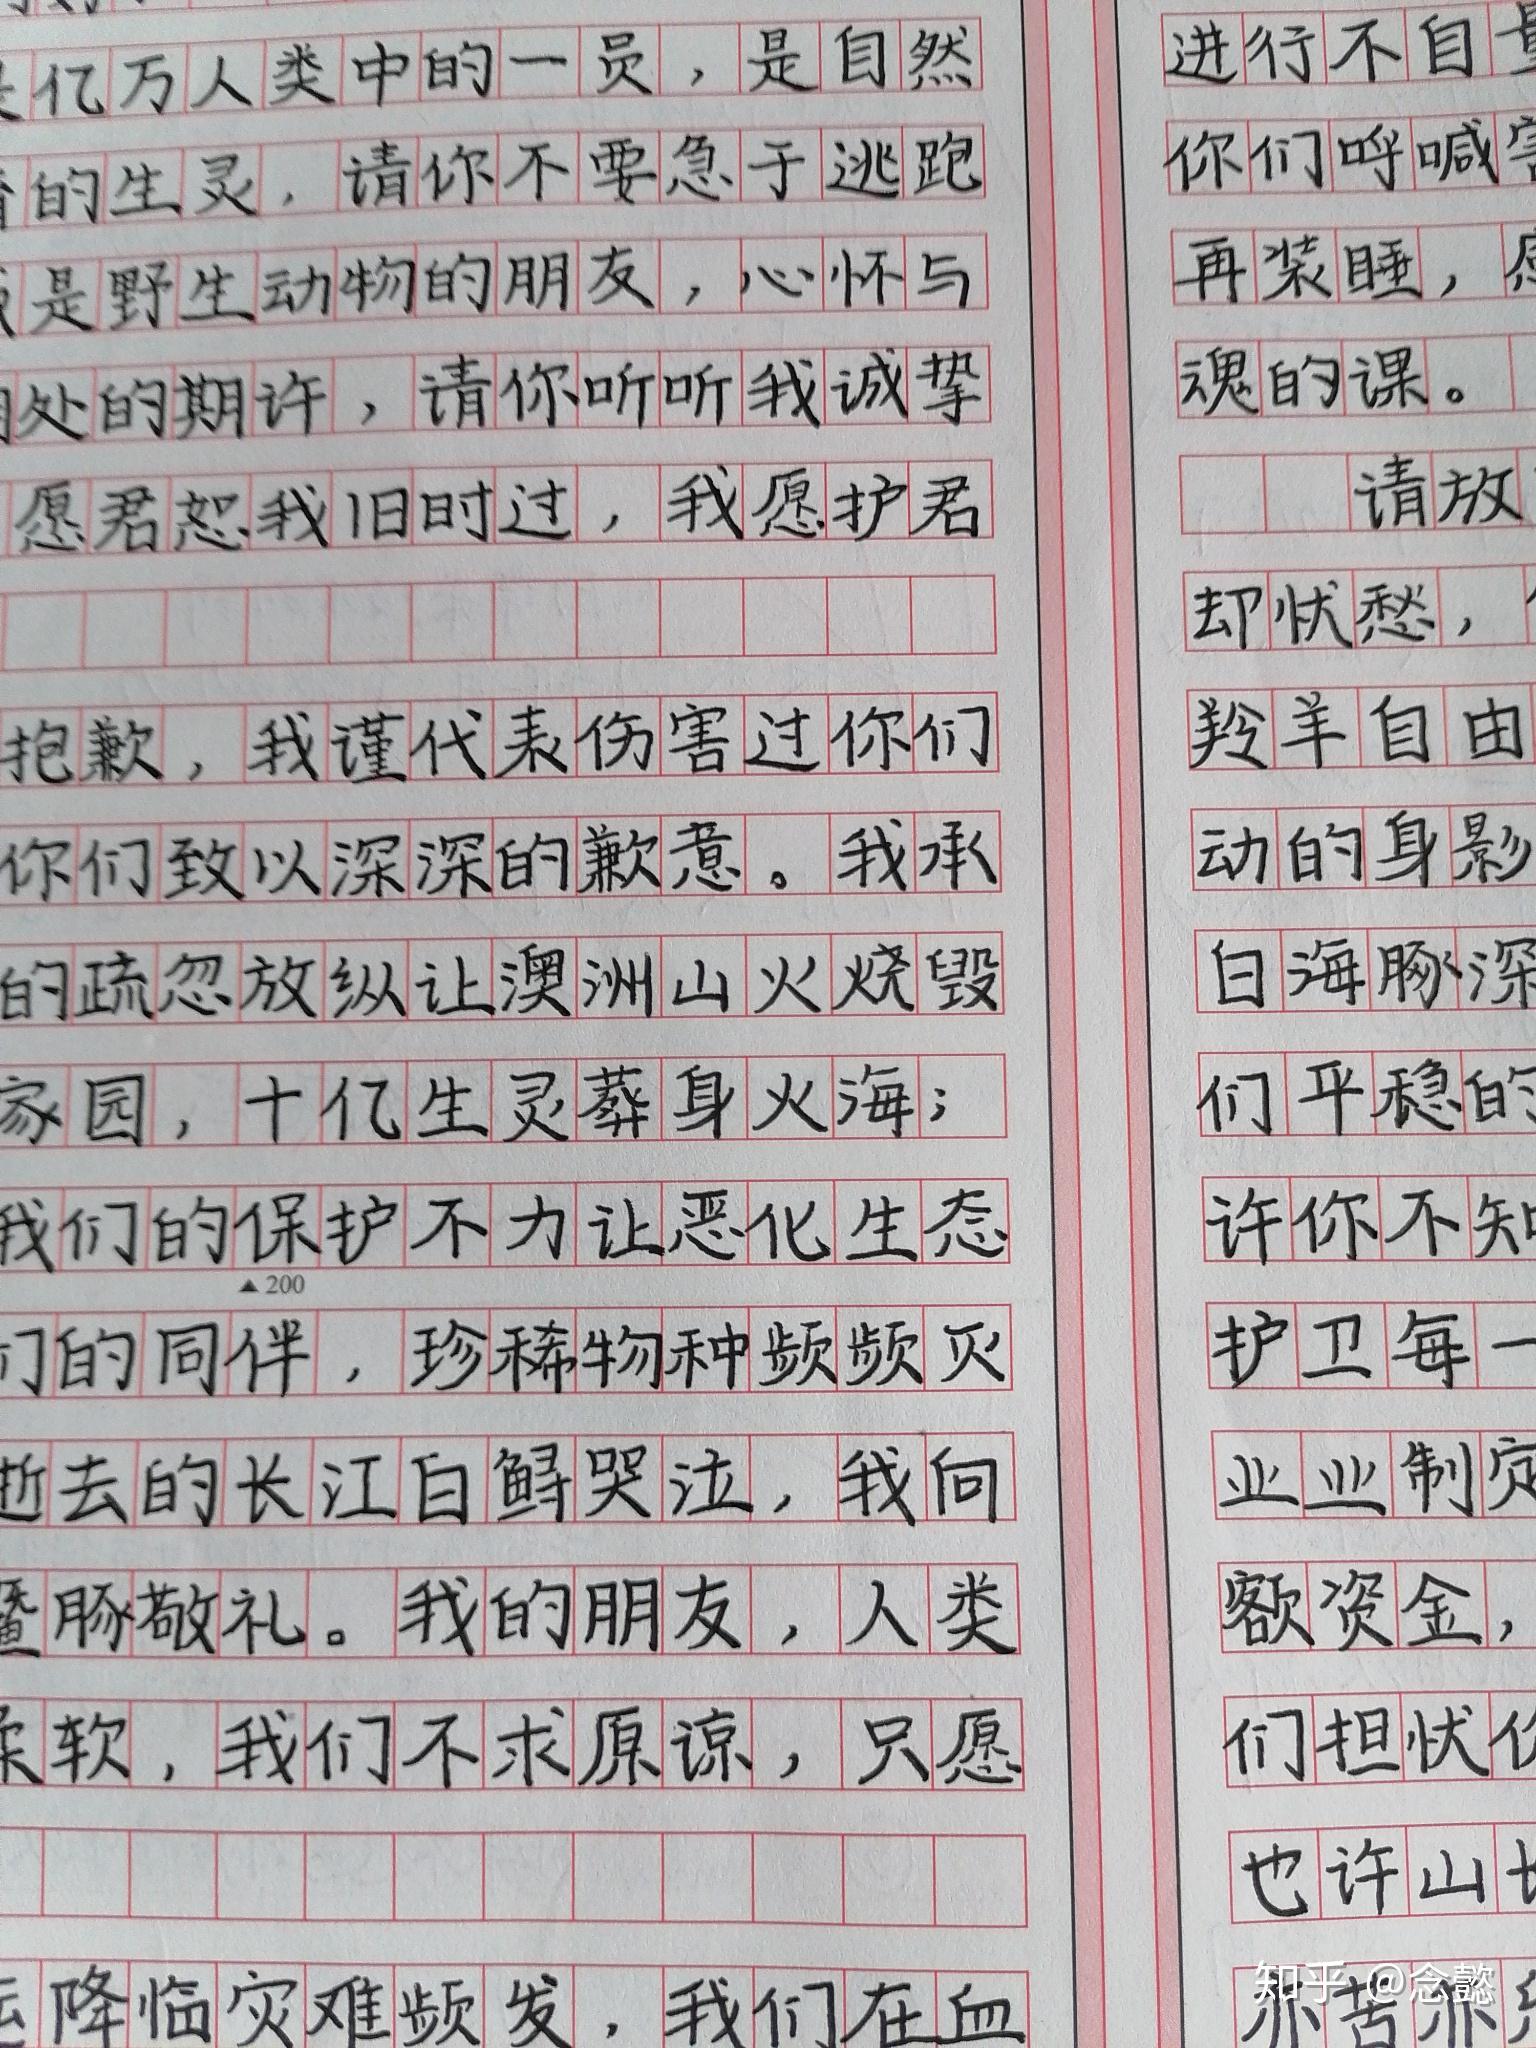 亿万人类中的一员，是自然
的生灵，请你不要急于逃跑
是野生动物的朋友，心怀与
相处的期许，请你听听我诚挚
愿君恕我旧时过，我愿护君
抱歉，我谨代表伤害过你们
你们致以深深的歉意。我承
的疏忽放纵让澳洲山火烧毁
家园，十亿生灵葬身火海；
我们的保护不力让恶化生态
▲200
们的同伴，珍稀物种频频灭
逝去的长江白鲟哭泣，我向
豚敬礼。我的朋友，人类
柔软，我们不求原谅，只愿
降临灾难频发，我们在血
进行不自量
你们呼喊
再装睡，
魂的课。
请放
却忧愁，
羚羊自由
动的身影
白海豚深
们平稳的
许你不知
护卫每一
业业制定
额资金，
们担忧
也许山
亦苦亦
知乎 @念懿